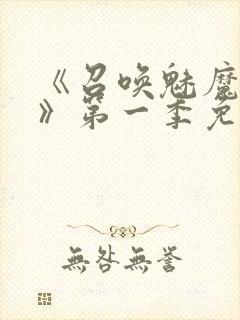 《召唤魅魔
》第一季免
無咎無誉